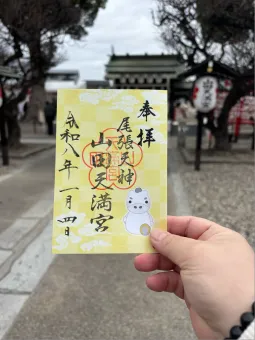 奉拝
尾張天神
山田天満宮
令和八年一月四日
山田天